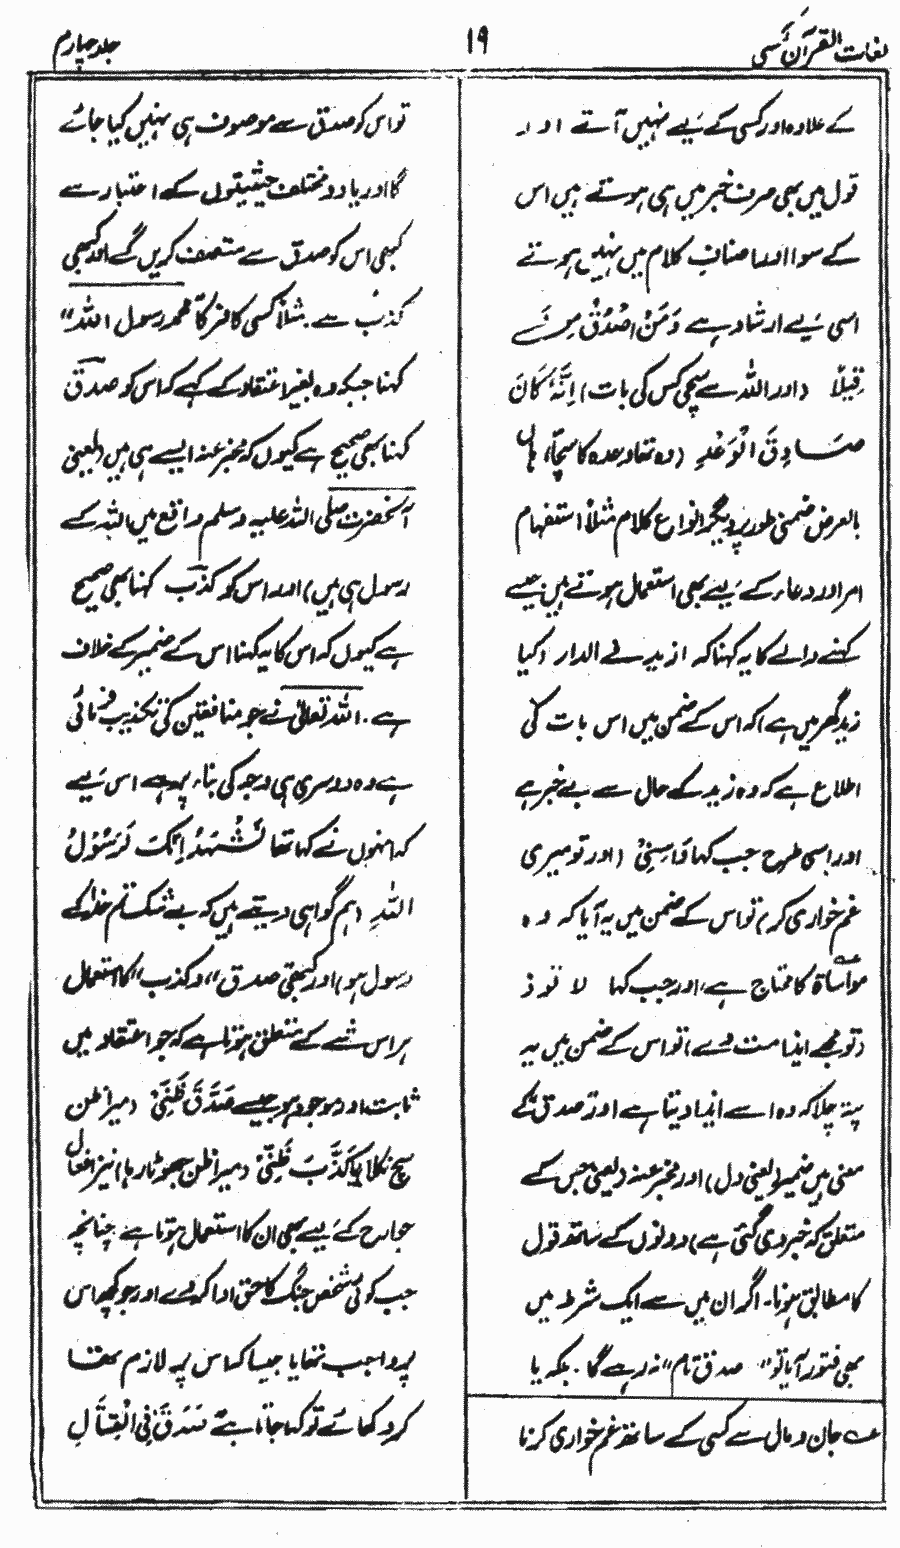 لغات القرآن سی
۱۹
جلد چہارم
کے علاوہ اور کسی کے لئے نہیں آتے اور
قول میں بھی صرف خبر میں ہی ہوتے ہیں اس
کے سوا اور اصناف کلام میں نہیں ہوتے
اسی لئے ارشاد ہے وَمَنْ اَصْدَقُ مِنَ
قِیْلًا (اور اللہ سے سچی کس کی بات) اِنَّهٗ کَانَ
صَادِقَ الْوَعْدِ (وہ تھا وعدہ کا سچا) ہاں
بالعرض ضمنی طور پر دیگر انواع کلام مثلاً استفہام
امر اور دعاء کے لئے بھی استعمال ہوتے ہیں جیسے
کہنے والے کا یہ کہنا کہ ازید فی الدار (کیا
زید گھر میں ہے) کہ اس کے ضمن میں اس بات کی
اطلاع ہے کہ وہ زید کے حال سے بے خبر ہے
اور اسی طرح جب کہا وَاسِنِیْ (اور تو میری
غم خواری کر) تو اس کے ضمن میں یہ آیا کہ وہ
مواساۃ کا محتاج ہے، اور جب کہا لا توذ
(تو مجھے ایذا مت دے) تو اس کے ضمن میں یہ
پتہ چلا کہ وہ اسے ایذا دیتا ہے اور صدق کے
معنی ہیں ضمیر (یعنی دل) اور مخبر عنہ (یعنی جس کے
متعلق کہ خبر دی گئی ہے) دونوں کے ساتھ قول
کا مطابق ہونا۔ اگر ان میں سے ایک شرط میں
بھی فتور آیا تو "صدق تام" نہ رہے گا۔ بلکہ یا
عہ جان و مال سے کسی کے ساتھ غم خواری کرنا
تو اس کو صدق سے موصوف ہی نہیں کیا جائے
گا اور یا دو مختلف حیثیتوں کے اعتبار سے
کبھی اس کو صدق سے متصف کریں گے اور کبھی
کذب سے۔ مثلاً کسی کافر کا "محمد رسول اللہ"
کہنا جبکہ وہ بغیر اعتقاد کے کہے کہ اس کو صدق
کہنا بھی صحیح ہے کیوں کہ مخبر عنہ ایسے ہی ہیں (یعنی
آنحضرت صلی اللہ علیہ وسلم واقع میں اللہ کے
رسول ہی ہیں) اور اس کو کذب کہنا بھی صحیح
ہے کیوں کہ اس کا یہ کہنا اس کے ضمیر کے خلاف
ہے۔ اللہ تعالیٰ نے جو منافقین کی تکذیب فرمائی
ہے وہ دوسری ہی وجہ کی بناء پر ہے اس لئے
کہ انہوں نے کہا تھا نَشْهَدُ اِنَّکَ لَرَسُوْلُ
اللّٰهِ (ہم گواہی دیتے ہیں کہ بے شک تم خدا کے
رسول ہو) اور کبھی صدق" و کذب" کا استعمال
ہر اس شے کے متعلق ہوتا ہے کہ جو اعتقاد میں
ثابت اور موجود ہو جیسے صَدَّقَ ظَنِّیْ (میرا ظن
سچ نکلا) یا کَذَّبَ ظَنِّیْ (میرا ظن جھوٹا رہا) نیز افعال
جوارح کے لئے بھی ان کا استعمال ہوتا ہے چنانچہ
جب کوئی شخص جنگ کا حق ادا کر دے اور جو کچھ اس
پر واجب تھا یا جیسا کہ اس پر لازم تھا
کر دکھائے تو کہا جاتا ہے صَدَقَ فِی الْقِتَالِ